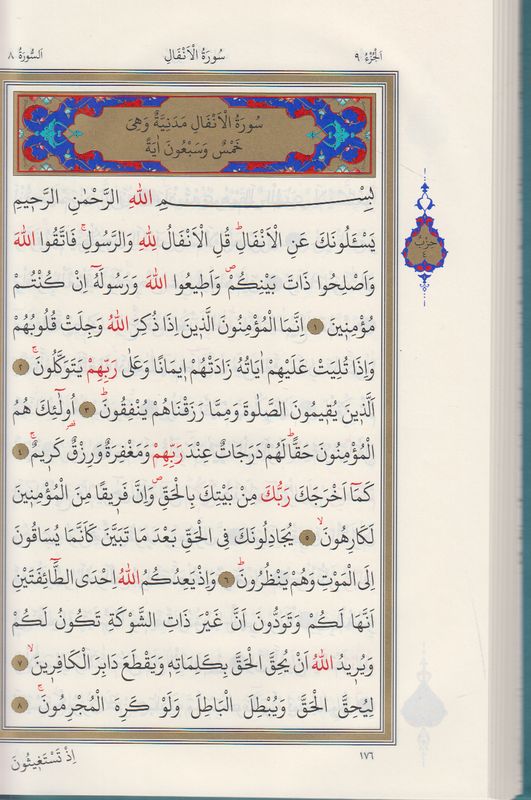 اَلْجُزْءُ ٩ سُورَةُ الْاَنْفَالِ اَلسُّورَةُ ٨
سُورَةُ الْاَنْفَالِ مَدَنِيَّةٌ وَهِيَ
خَمْسٌ وَسَبْعُونَ اٰيَةً
بِسْمِ اللّٰهِ الرَّحْمٰنِ الرَّحٖيمِ
يَسْـَٔلُونَكَ عَنِ الْاَنْفَالِۜ قُلِ الْاَنْفَالُ لِلّٰهِ وَالرَّسُولِۚ فَاتَّقُوا اللّٰهَ
وَاَصْلِحُوا ذَاتَ بَيْنِكُمْۖ وَاَطٖيعُوا اللّٰهَ وَرَسُولَهُٓ اِنْ كُنْتُمْ
مُؤْمِنٖينَ ١ اِنَّمَا الْمُؤْمِنُونَ الَّذٖينَ اِذَا ذُكِرَ اللّٰهُ وَجِلَتْ قُلُوبُهُمْ
وَاِذَا تُلِيَتْ عَلَيْهِمْ اٰيَاتُهُ زَادَتْهُمْ اٖيمَانًا وَعَلٰى رَبِّهِمْ يَتَوَكَّلُونَۚ ٢
اَلَّذٖينَ يُقٖيمُونَ الصَّلٰوةَ وَمِمَّا رَزَقْنَاهُمْ يُنْفِقُونَۜ ٣ اُو۬لٰٓئِكَ هُمُ
الْمُؤْمِنُونَ حَقًّاۜ لَهُمْ دَرَجَاتٌ عِنْدَ رَبِّهِمْ وَمَغْفِرَةٌ وَرِزْقٌ كَرٖيمٌۚ ٤
كَمَٓا اَخْرَجَكَ رَبُّكَ مِنْ بَيْتِكَ بِالْحَقِّۖ وَاِنَّ فَرٖيقًا مِنَ الْمُؤْمِنٖينَ
لَكَارِهُونَۙ ٥ يُجَادِلُونَكَ فِي الْحَقِّ بَعْدَ مَا تَبَيَّنَ كَاَنَّمَا يُسَاقُونَ
اِلَى الْمَوْتِ وَهُمْ يَنْظُرُونَۜ ٦ وَاِذْ يَعِدُكُمُ اللّٰهُ اِحْدَى الطَّٓائِفَتَيْنِ
اَنَّهَا لَكُمْ وَتَوَدُّونَ اَنَّ غَيْرَ ذَاتِ الشَّوْكَةِ تَكُونُ لَكُمْ
وَيُرٖيدُ اللّٰهُ اَنْ يُحِقَّ الْحَقَّ بِكَلِمَاتِهٖ وَيَقْطَعَ دَابِرَ الْكَافِرٖينَۙ ٧
لِيُحِقَّ الْحَقَّ وَيُبْطِلَ الْبَاطِلَ وَلَوْ كَرِهَ الْمُجْرِمُونَۚ ٨
حِزْبٌ
٤
١٧٦ اِذْ تَسْتَغٖيثُونَ